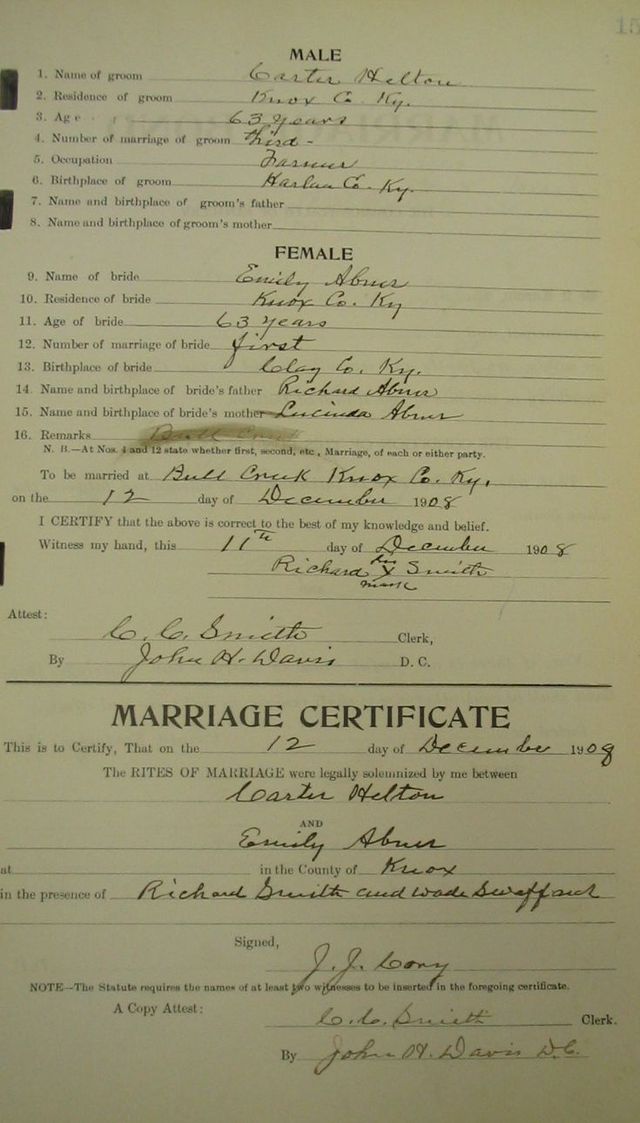 15
MALE
1. Name of groom Carter Helton
2. Residence of groom Knox Co. Ky.
3. Age 63 years
4. Number of marriage of groom Third -
5. Occupation Farmer
6. Birthplace of groom Harlan Co. Ky.
7. Name and birthplace of groom's father
8. Name and birthplace of groom's mother
FEMALE
9. Name of bride Emily Abner
10. Residence of bride Knox Co. Ky
11. Age of bride 63 years
12. Number of marriage of bride first
13. Birthplace of bride Clay Co. Ky.
14. Name and birthplace of bride's father Richard Abner
15. Name and birthplace of bride's mother Lucinda Abner
16. Remarks Bull Creek
N. B.—At Nos. 4 and 12 state whether first, second, etc., Marriage, of each or either party.
To be married at Bull Creek Knox Co. Ky.
on the 12 day of December 1908
I CERTIFY that the above is correct to the best of my knowledge and belief.
Witness my hand, this 11th day of December 1908
Richard his X mark Smith
Attest:
C. C. Smith Clerk,
By John H. Davis D. C.
MARRIAGE CERTIFICATE
This is to Certify, That on the 12 day of December 1908
The RITES OF MARRIAGE were legally solemnized by me between
Carter Helton
AND
Emily Abner
at in the County of Knox
in the presence of Richard Smith and Wade
Signed,
J. J. Cory
NOTE—The Statute requires the names of at least two witnesses to be inserted in the foregoing certificate.
A Copy Attest:
C. C. Smith Clerk.
By John H. Davis D.C.